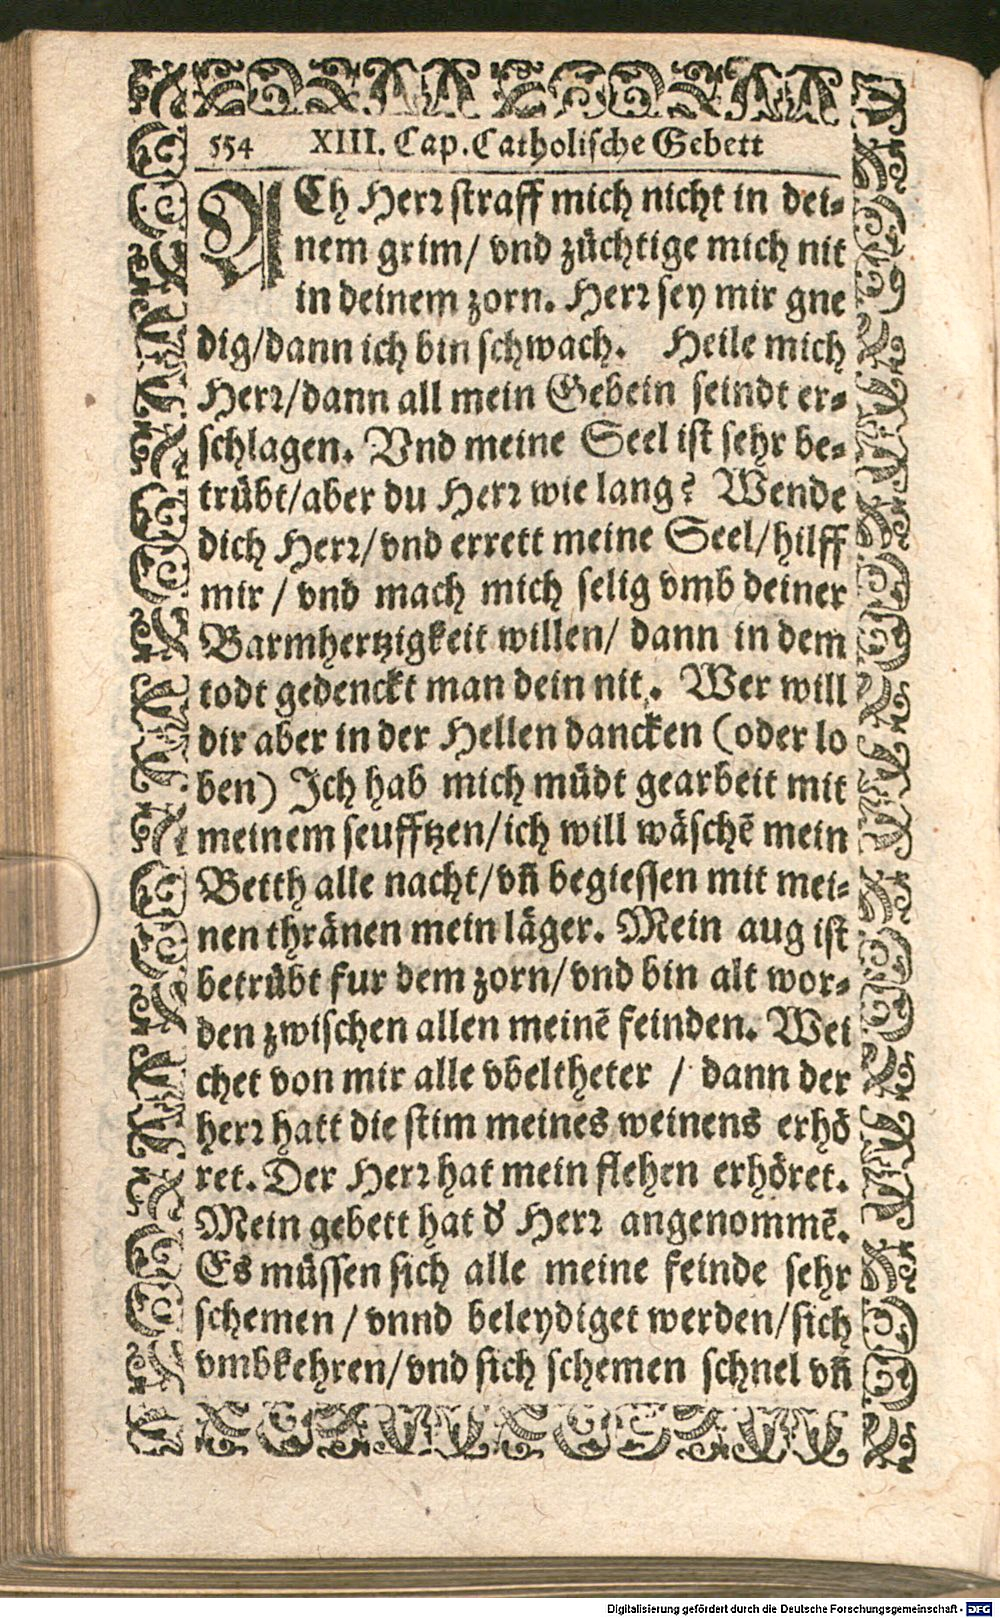 554 XIII. Cap. Catholische Gebett
ACh Herr straff mich nicht in dei-
nem grim/ vnd züchtige mich nit
in deinem zorn. Herr sey mir gne
dig/dann ich bin schwach. Heile mich
Herr/dann all mein Gebein seindt er-
schlagen. Vnd meine Seel ist sehr be-
trübt/aber du Herr wie lang? Wende
dich Herr/vnd errett meine Seel/hilff
mir / vnd mach mich selig vmb deiner
Barmhertzigkeit willen/ dann in dem
todt gedenckt man dein nit. Wer will
dir aber in der Hellen dancken (oder lo
ben) Ich hab mich müdt gearbeit mit
meinem seufftzen/ich will wäschē mein
Betth alle nacht/vñ begiessen mit mei-
nen thränen mein läger. Mein aug ist
betrübt fur dem zorn/vnd bin alt wor-
den zwischen allen meinē feinden. Wei
chet von mir alle vbeltheter / dann der
herr hatt die stim meines weinens erhö
ret. Der Herr hat mein flehen erhöret.
Mein gebett hat d' Herr angenommē.
Es müssen sich alle meine feinde sehr
schemen / vnnd beleydiget werden/sich
vmbkehren/vnd sich schemen schnel vñ
Digitalisierung gefördert durch die Deutsche Forschungsgemeinschaft - DFG